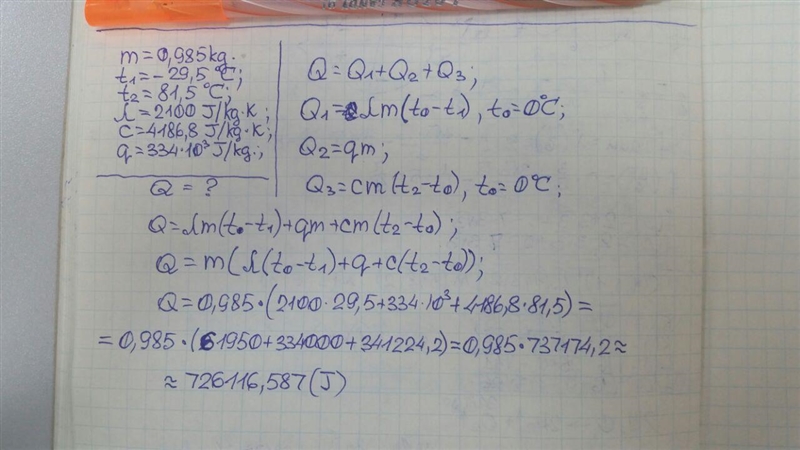 m=0,985kg.
t1=-29,5°C;
t2=81,5°C;
λ=2100 J/kg·K;
c=4186,8 J/kg·K;
q=334·10³J/kg.;
Q = ?
Q=Q1+Q2+Q3;
Q1=λm(t0-t1), t0=0°C;
Q2=qm;
Q3=cm(t2-t0), t0=0°C;
Q=λm(t0-t1)+qm+cm(t2-t0);
Q=m(λ(t0-t1)+q+c(t2-t0));
Q=0,985·(2100·29,5+334·10³+4186,8·81,5)=
=0,985·(61950+334000+341224,2)=0,985·737174,2≈
≈726116,587(J)